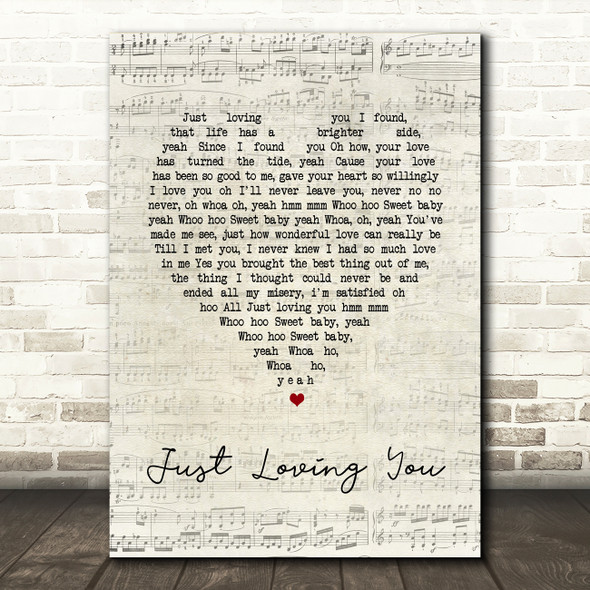 Just loving you I found,
that life has a brighter side,
yeah Since I found you Oh how, your love
has turned the tide, yeah Cause your love
has been so good to me, gave your heart so willingly
I love you oh I'll never leave you, never no no
never, oh whoa oh, yeah hmm mmm Whoo hoo Sweet baby
yeah Whoo hoo Sweet baby yeah Whoa, oh, yeah You've
made me see, just how wonderful love can really be
Till I met you, I never knew I had so much love
in me Yes you brought the best thing out of me,
the thing I thought could never be and
ended all my misery, i'm satisfied oh
hoo All Just loving you hmm mmm
Whoo hoo Sweet baby, yeah
Whoo hoo Sweet baby,
yeah Whoa ho,
Whoa ho,
yeah
Just Loving You